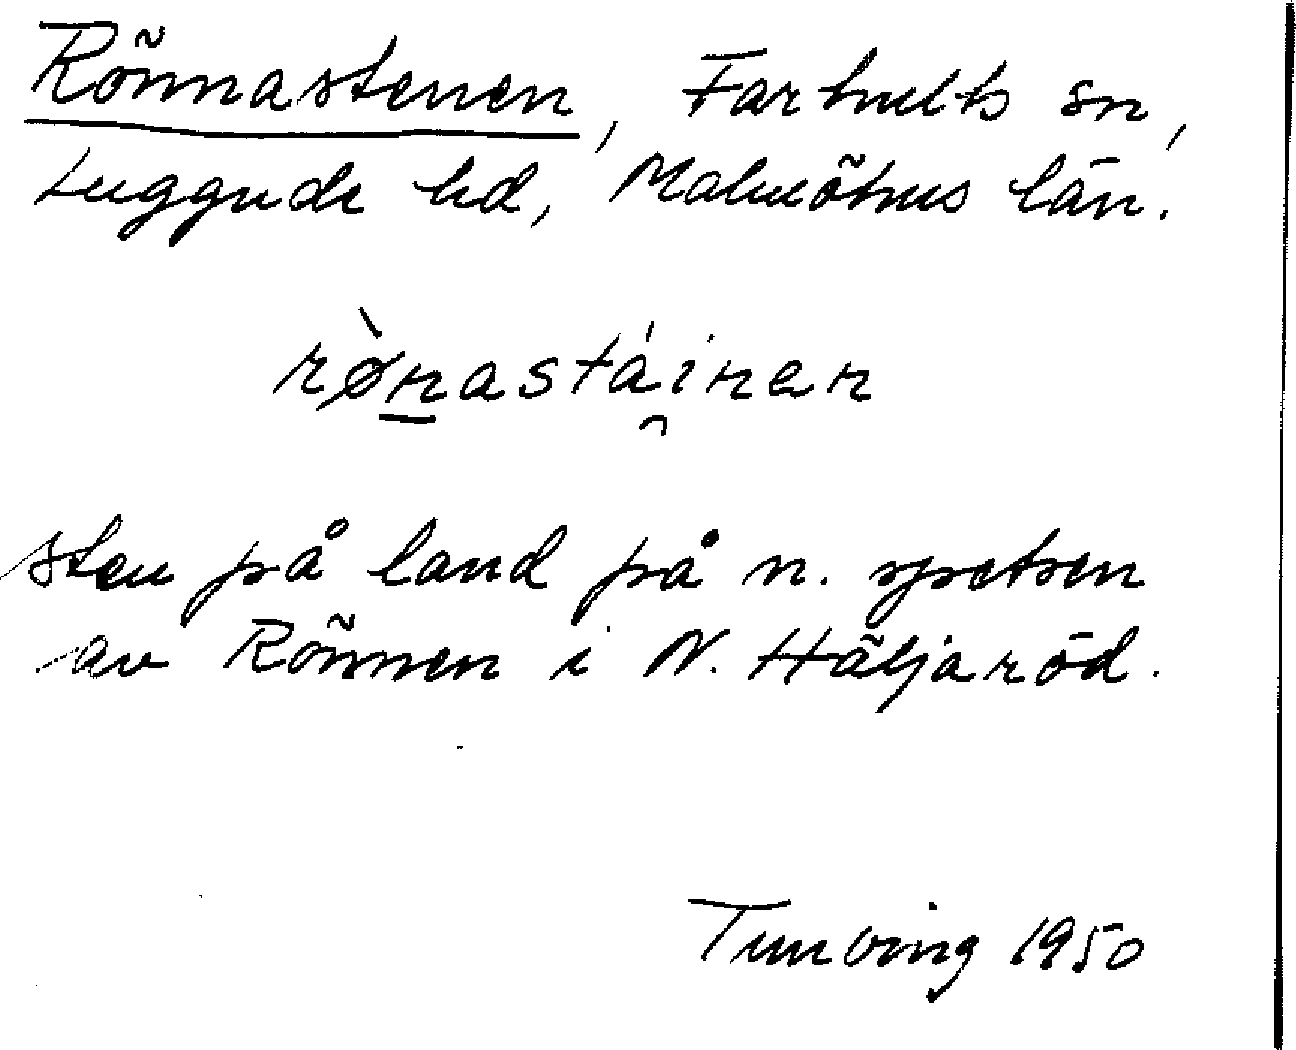 Rönnastenen, Farhults sn,
Luggude hd, Malmöhus län.
rø̀nastáinen
sten på land på n. spetsen
av Rönnen i N. Häljaröd.
Tunving 1950